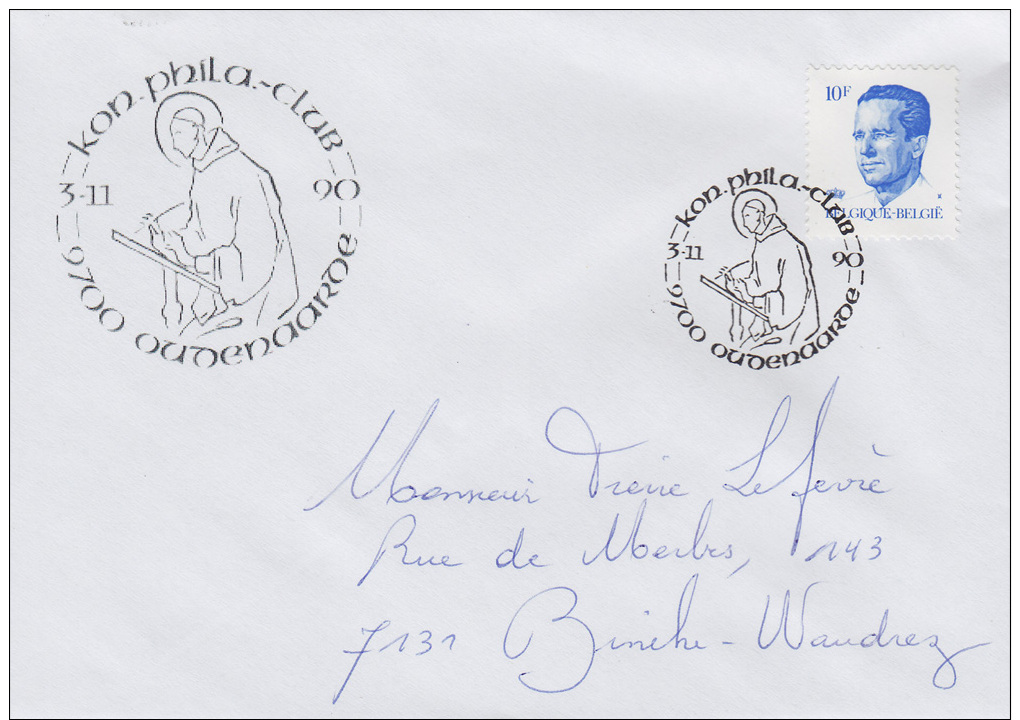 kon. phila.-club
3-11 90
9700 oudenaarde
10F
BELGIQUE-BELGIË
kon. phila.-club
3-11 90
9700 oudenaarde
Monsieur Pierre Lefèvre
Rue de Merbes, 143
7131 Binche-Waudrez